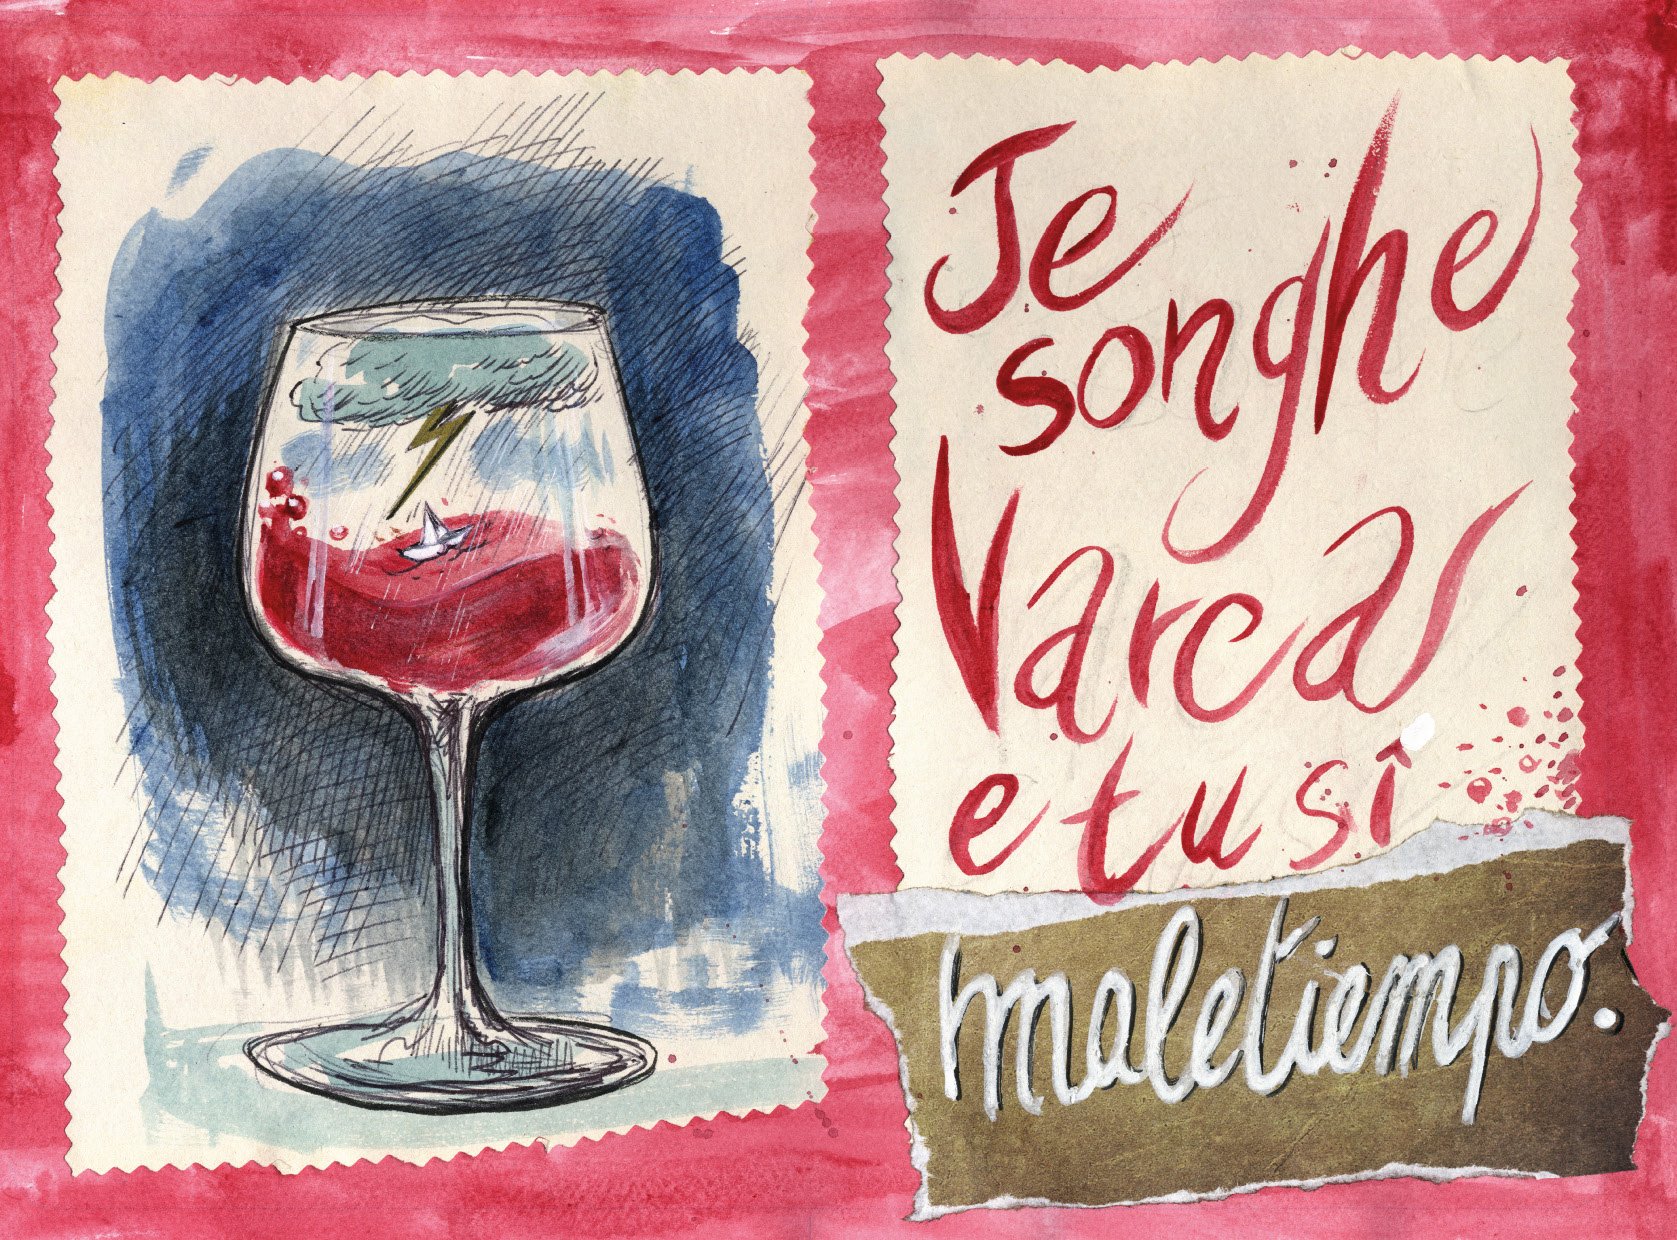 Je
songhe
Varca
e tu sî
maletiempo.